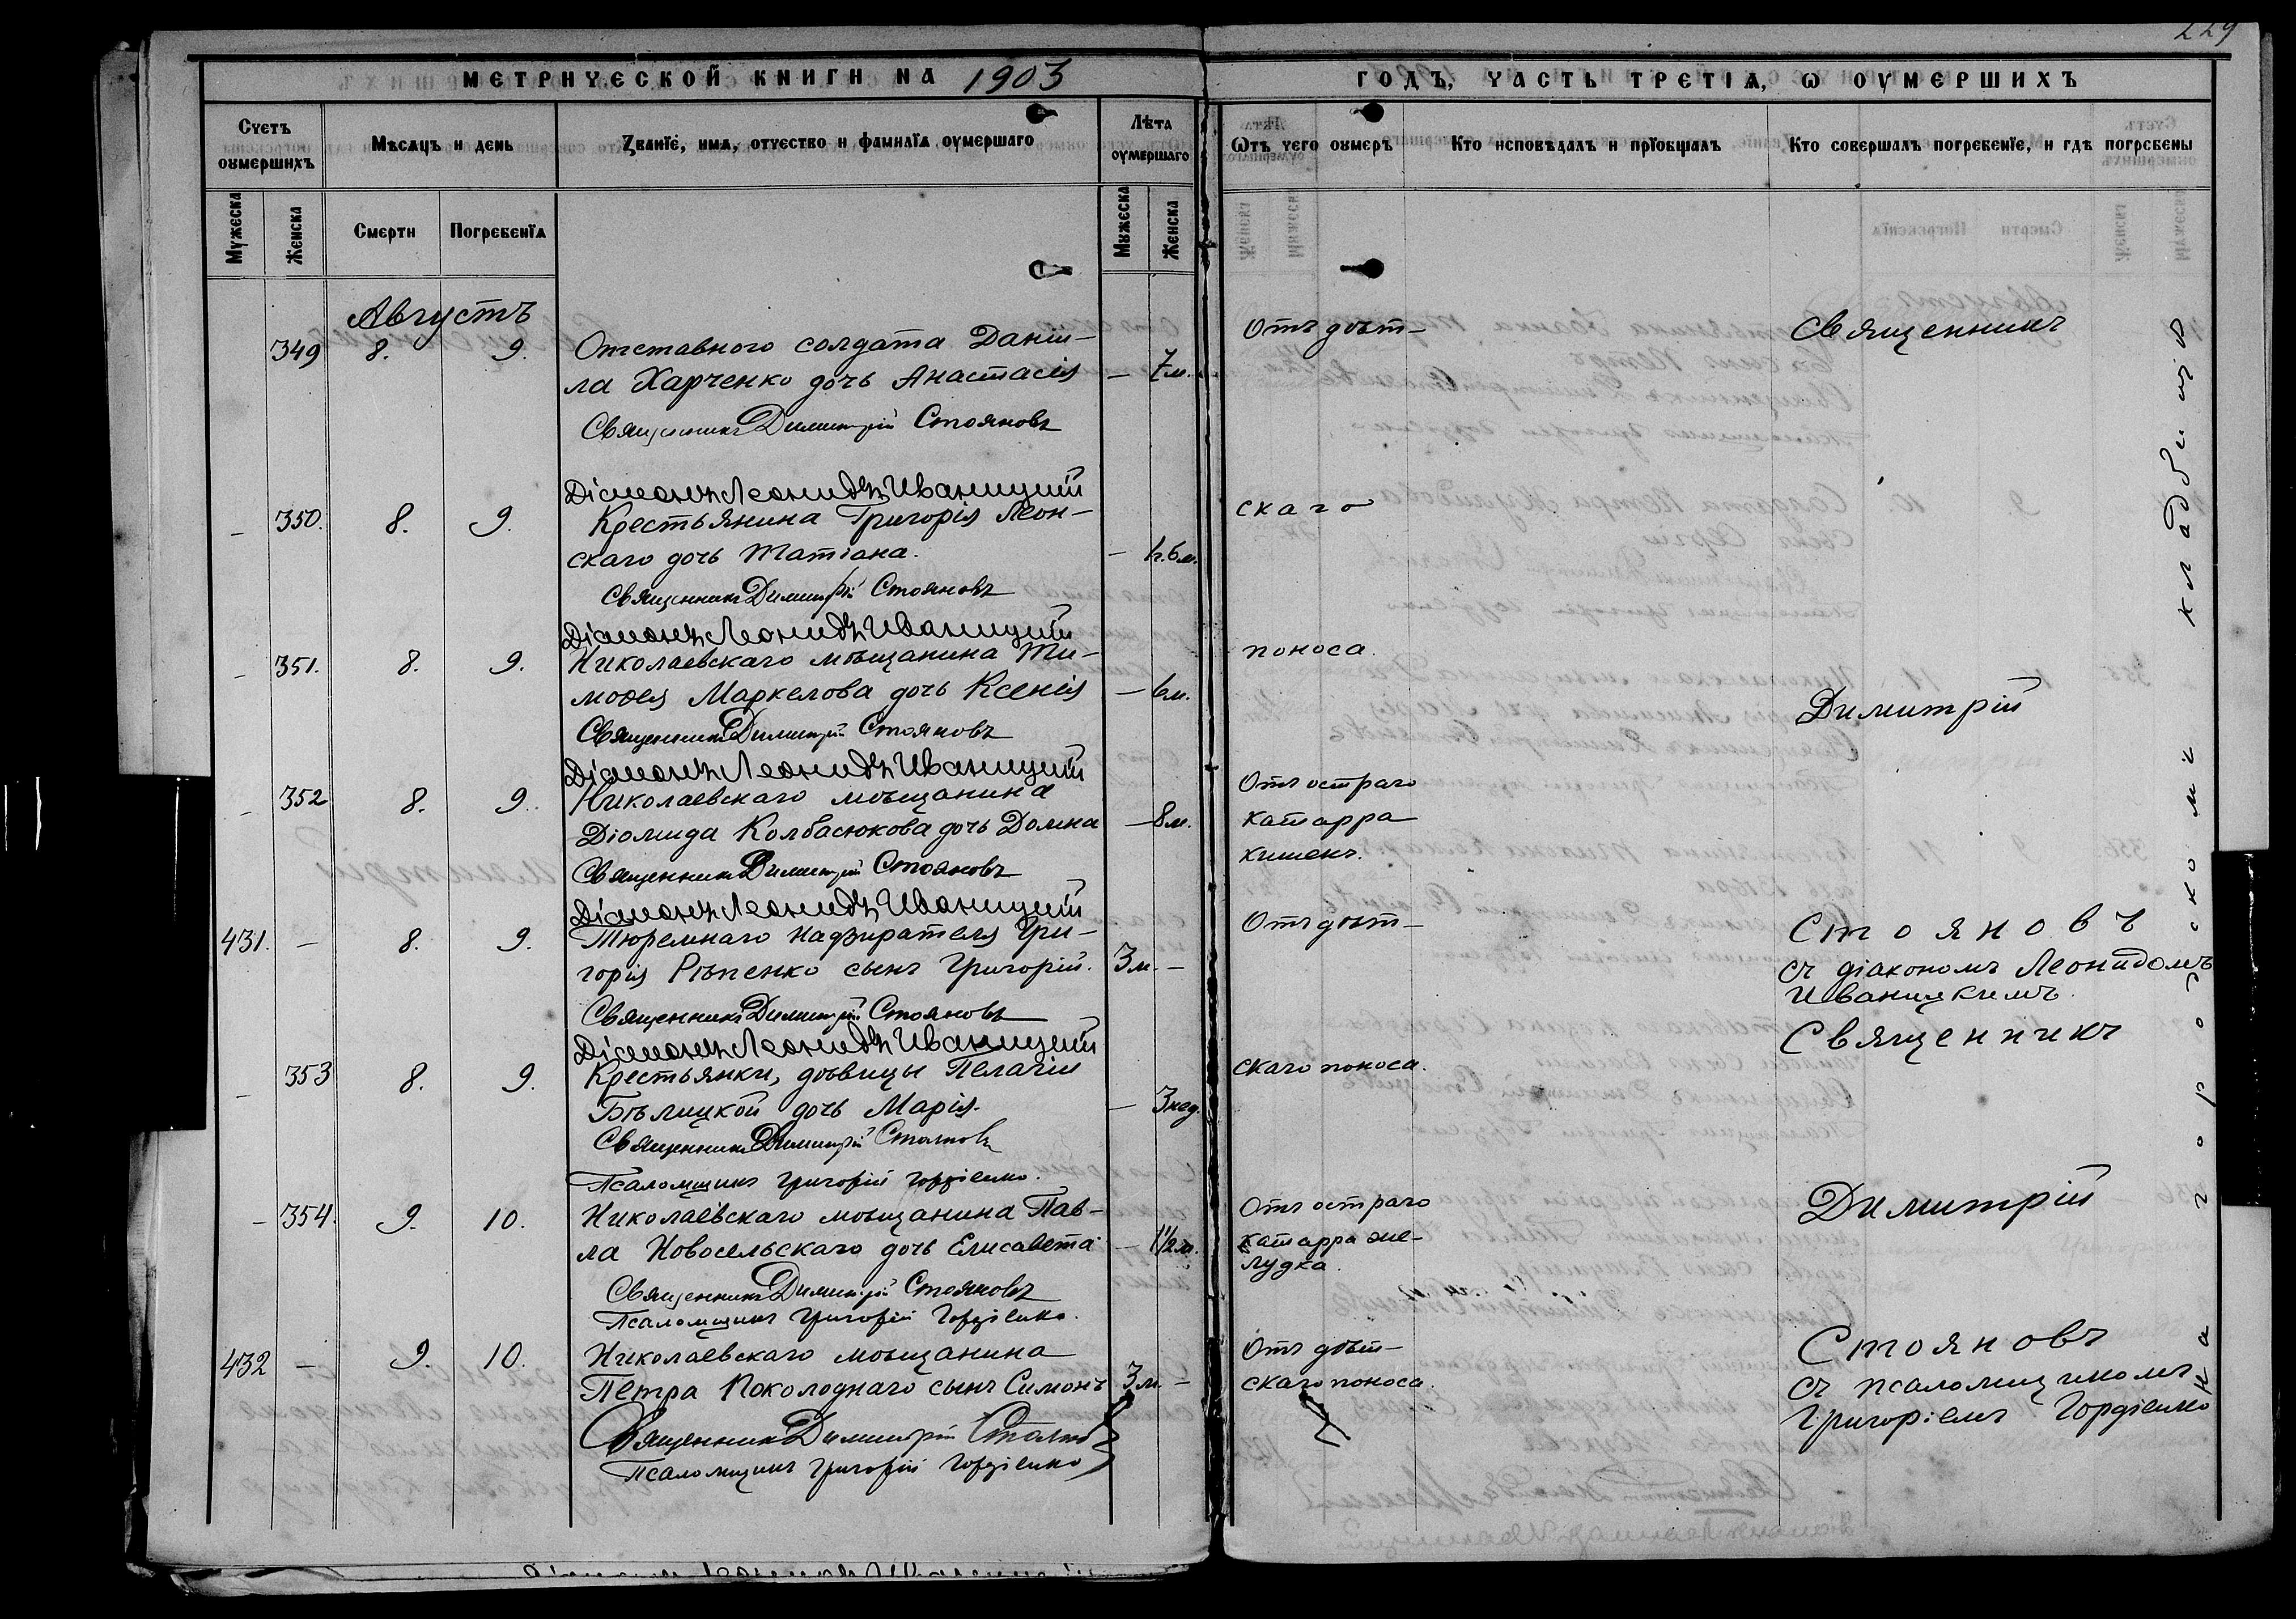 229
МЕТРИЧЕСКОЙ КНИГИ НА 1903
ГОДЪ, ЧАСТЬ ТРЕТІѦ, Ѡ ОУМЕРШИХЪ
Счетъ оумершихъ
Мѣсяцъ и день
Званїе, имѧ, отчество и фамилїѧ оумершаго
Лѣта оумершаго
Ѿтъ чего оумеръ
Кто исповѣдалъ и прїобщалъ
Кто совершалъ погребенїе, и гдѣ погребены
Мужеска
Женска
Смерти
Погребенїѧ
Мужеска
Женска
Августъ
349 8. 9. Отставного солдата Даніи-
ла Харченко дочь Анастасія — 7 м.
Священникъ Димитрій Стояновъ
Діаконъ Леонидъ Иваницкій
— 350. 8. 9. Крестьянина Григорія Леон-
скаго дочь Татіана. — 1 г. 6 м.
Священникъ Димитрій Стояновъ
Діаконъ Леонидъ Иваницкій
— 351. 8. 9. Николаевскаго мѣщанина Ти-
моѳея Маркелова дочь Ксенія — 6 м.
Священникъ Димитрій Стояновъ
Діаконъ Леонидъ Иваницкій
— 352 8. 9. Николаевскаго мѣщанина
Діомида Колбасюкова дочь Домна — 8 м.
Священникъ Димитрій Стояновъ
Діаконъ Леонидъ Иваницкій
431. — 8. 9. Тюремнаго надзирателя Гри-
горія Рѣпенко сынъ Григорій. 3 м. —
Священникъ Димитрій Стояновъ
Діаконъ Леонидъ Иваницкій
— 353 8. 9. Крестьянки, дѣвицы Пелагіи
Бѣлицкой дочь Марія. — 3 нед.
Священникъ Димитрій Стояновъ
Псаломщикъ Григорій Гордіенко.
— 354. 9. 10. Николаевскаго мѣщанина Пав-
ла Новосельскаго дочь Елисавета — 1½ м.
Священникъ Димитрій Стояновъ
Псаломщикъ Григорій Гордіенко.
432 — 9. 10. Николаевскаго мѣщанина
Петра Поколоднаго сынъ Симонъ 3 м. —
Священникъ Димитрій Стоянов
Псаломщикъ Григорій Гордіенко
Отъ дѣт-
скаго
поноса.
Отъ остраго
катарра
кишекъ.
Отъ дѣт-
скаго поноса.
Отъ остраго
катарра же-
лудка.
Отъ дѣт-
скаго поноса.
Священникъ
Димитрій
Стояновъ
съ діакономъ Леонидомъ
Иваницкимъ.
Священникъ
Димитрій
Стояновъ
съ псаломщикомъ
Григоріемъ Гордіенко
на городскомъ кладбищѣ